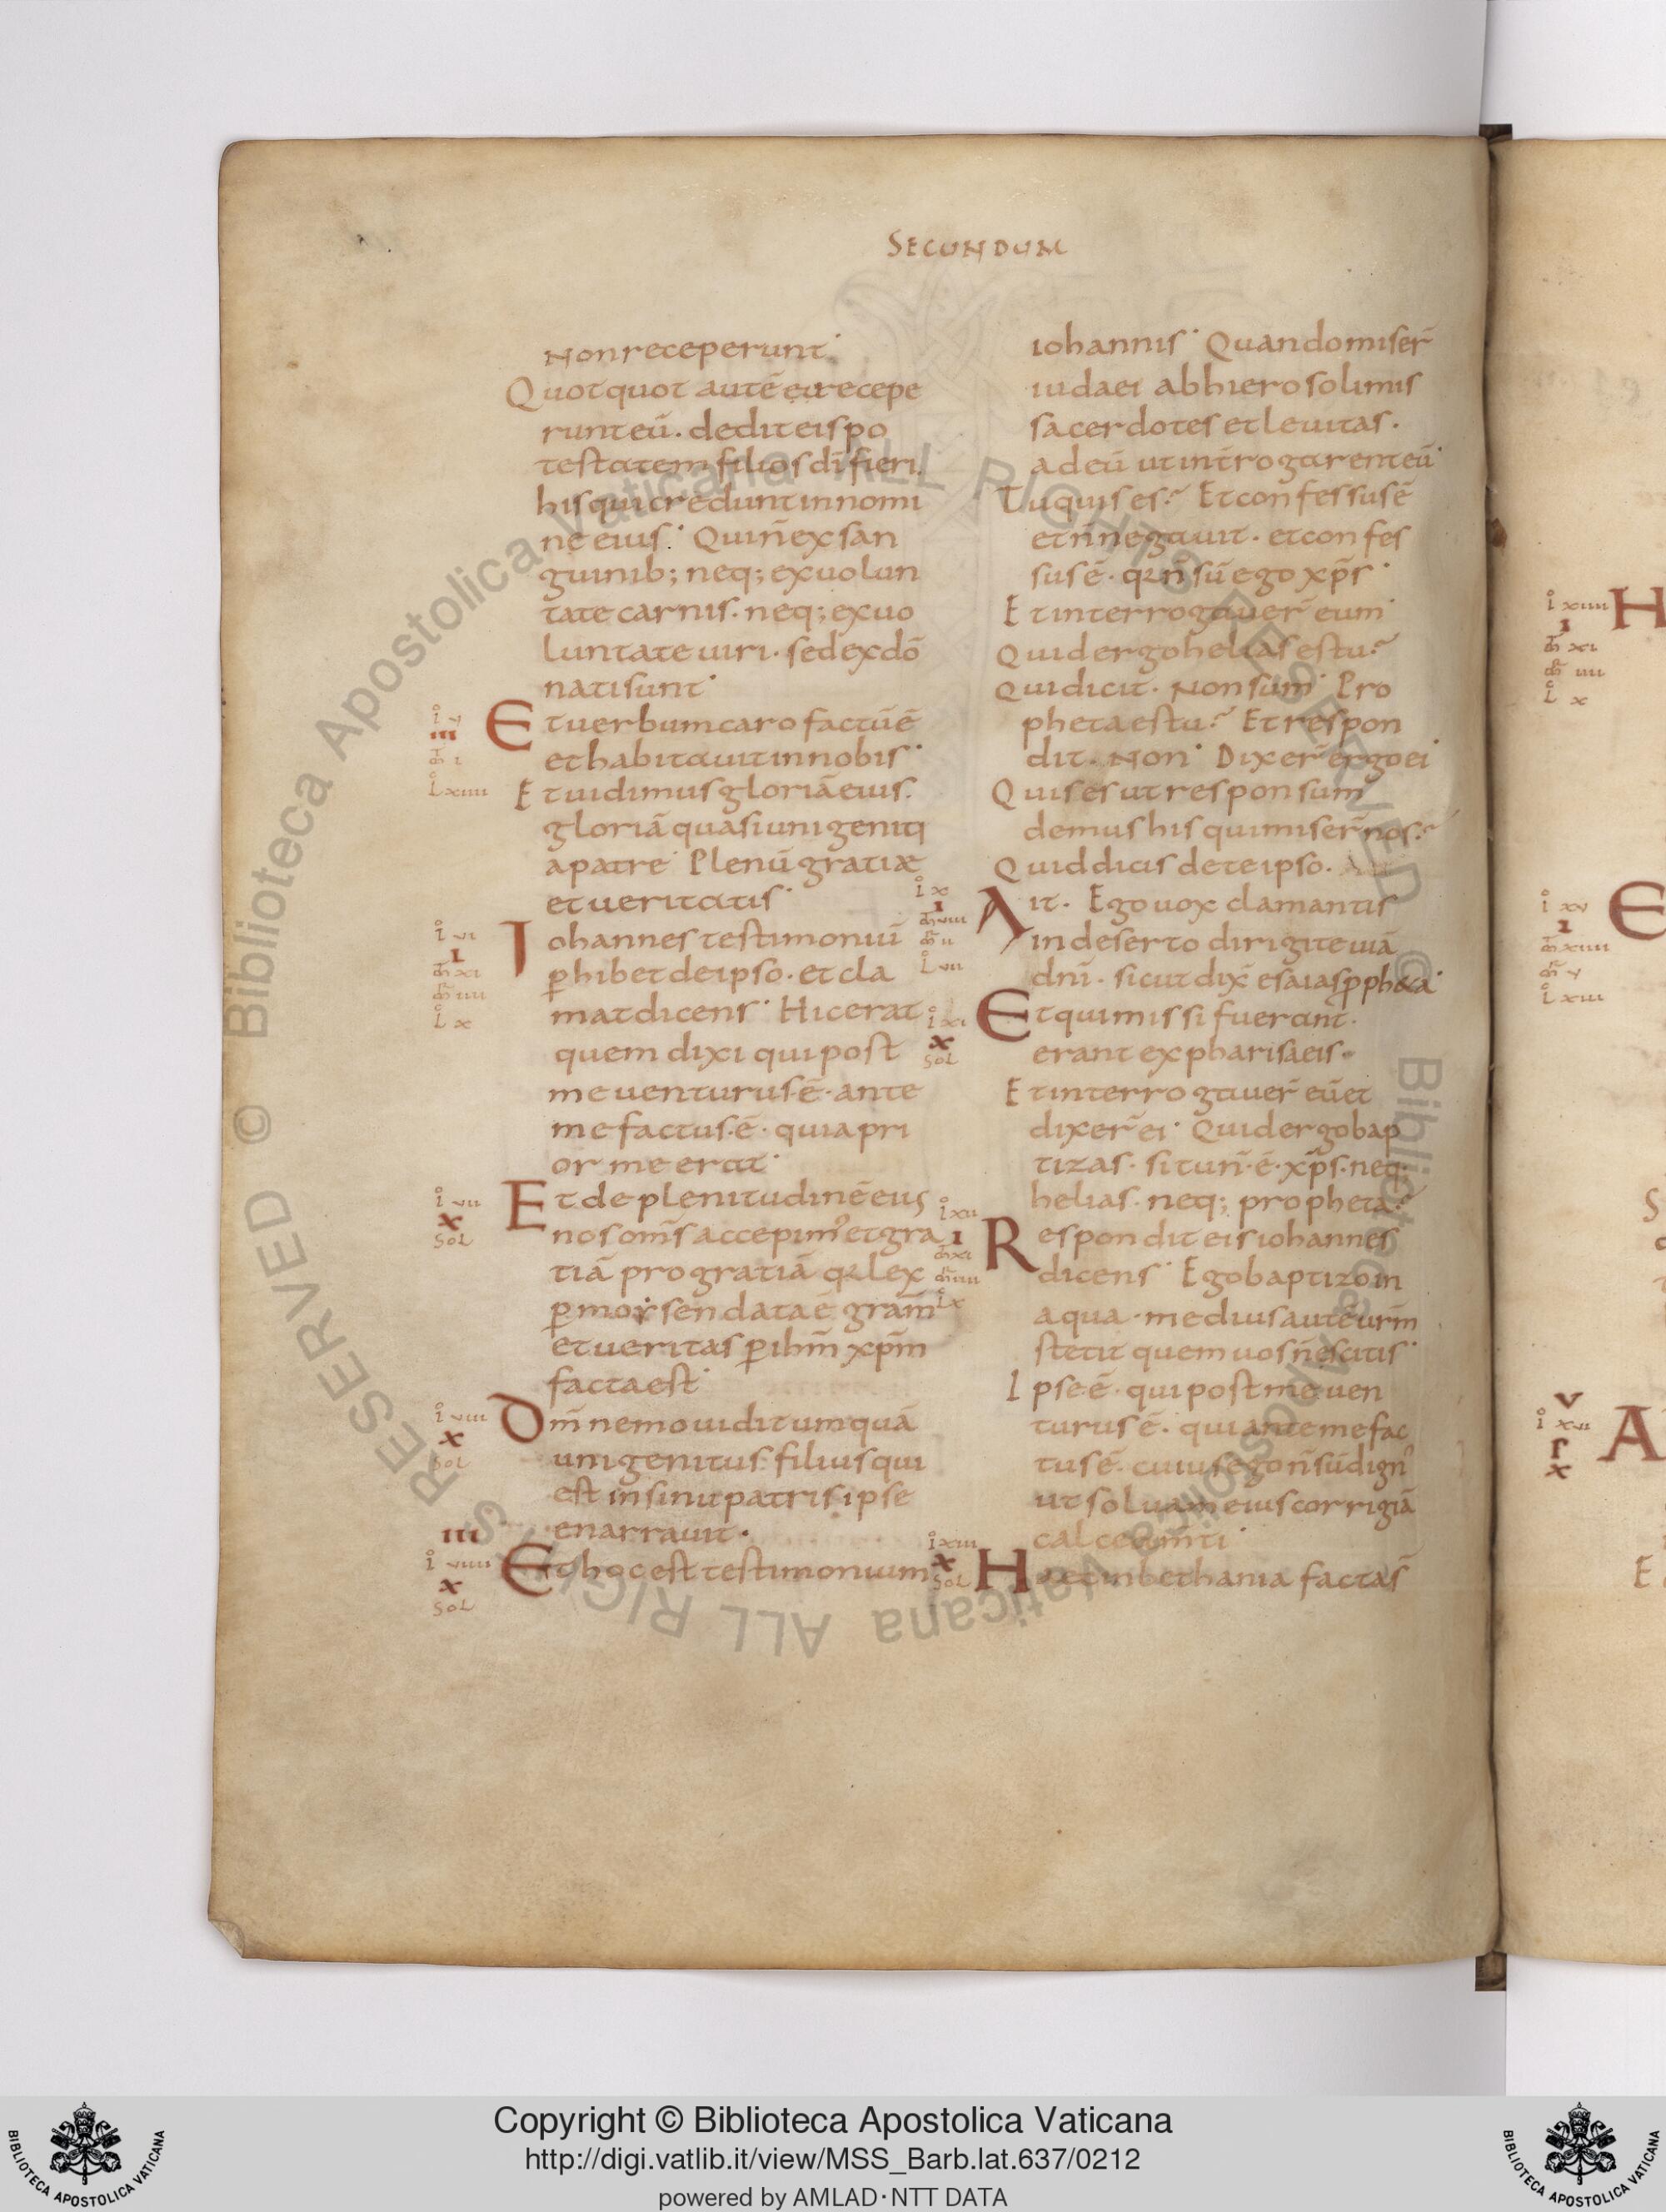 SECUNDUM
Non receperunt.
Quotquot autē eu recepe
runt eū. dedit eis po
testatem filios dī fieri.
his qui credunt in nomi
ne eius. Qui n̄ ex san
guinib; neq; ex uolun
tate carnis. neq; ex uo
luntate uiri. sed ex dō
nati sunt.
i v
III
m̄ i
L xiiii
Et uerbum caro factū ē
et habitauit in nobis.
Et uidimus gloriā eius.
gloriā quasi unigeniti
a patre. Plenū gratiæ
et ueritatis.
i vi
I
m̄ xi
m̄r iiii
L x
Iohannes testimoniū
p̱hibet de ipso. et cla
mat dicens. Hic erat
quem dixi qui post
me uenturus ē. ante
me factus ē. quia pri
or me erat.
i vii
X
SOL
Et de plenitudinē eius
nos om̄s accepim' et gra
tiā pro gratiā qꝛ lex
p̱ moysen data ē gram̄
et ueritas p̱ ihm̄ xp̄m
facta est.
i viii
X
SOL
Dm̄ nemo uidit umquā
unigenitus filius qui
est in sinu patris ipse
enarrauit.
III
i viiii
X
SOL
Et hoc est testimonium
iohannis. Quando miser̄
iudaei ab hierosolimis
sacerdotes et leuitas.
ad eū ut introgarent eū.
Tu quis es? Et confessus ē
et n̄ negauit. et confes
sus ē. qꝛ n̄ sū ego xp̄s.
Et interrogauer̄ eum.
Quid ergo helias es tu?
Qui dicit. Non sum. Pro
pheta es tu? Et respon
dit. Non. Dixer̄ ergo ei.
Quis es ut responsum
demus his qui miser̄ nos?
Quid dicis de te ipso.
i x
I
m̄ viii
m̄r ii
L vii
Ait. Ego uox clamantis
in deserto dirigite uiā
dni. sicut dix̄ esaias ꝓpheta.
i xi
X
SOL
Et qui missi fuerant.
erant ex pharisaeis.
Et interrogauer̄ eū et
dixer̄ ei. Quid ergo bap
tizas. si tu n̄ ē. xp̄s. neq;
helias. neq; propheta?
i xii
I
m̄ xi
m̄r iiii
L x
Respondit eis iohannes
dicens. Ego baptizo in
aqua. medius autē urm̄
stetit quem uos nescitis.
Ipse ē. qui post me uen
turus ē. qui ante me fac
tus ē. cuius ego n̄ sū dign'
ut soluam eius corrigiā
calceam̄ti.
i xiii
X
SOL
Hæc in bethania facta s̄
i xiiii
I
m̄ xi
m̄r iiii
L x
H
i xv
I
m̄ xiiii
m̄r v
L xiii
E
S
V
i xvi
X
A
E
Copyright © Biblioteca Apostolica Vaticana
http://digi.vatlib.it/view/MSS_Barb.lat.637/0212
powered by AMLAD·NTT DATA
BIBLIOTECA APOSTOLICA VATICANA
BIBLIOTECA APOSTOLICA VATICANA
© Biblioteca Apostolica Vaticana ALL RIGHTS RESERVED © Biblioteca Apostolica Vaticana ALL RIGHTS RESERVED